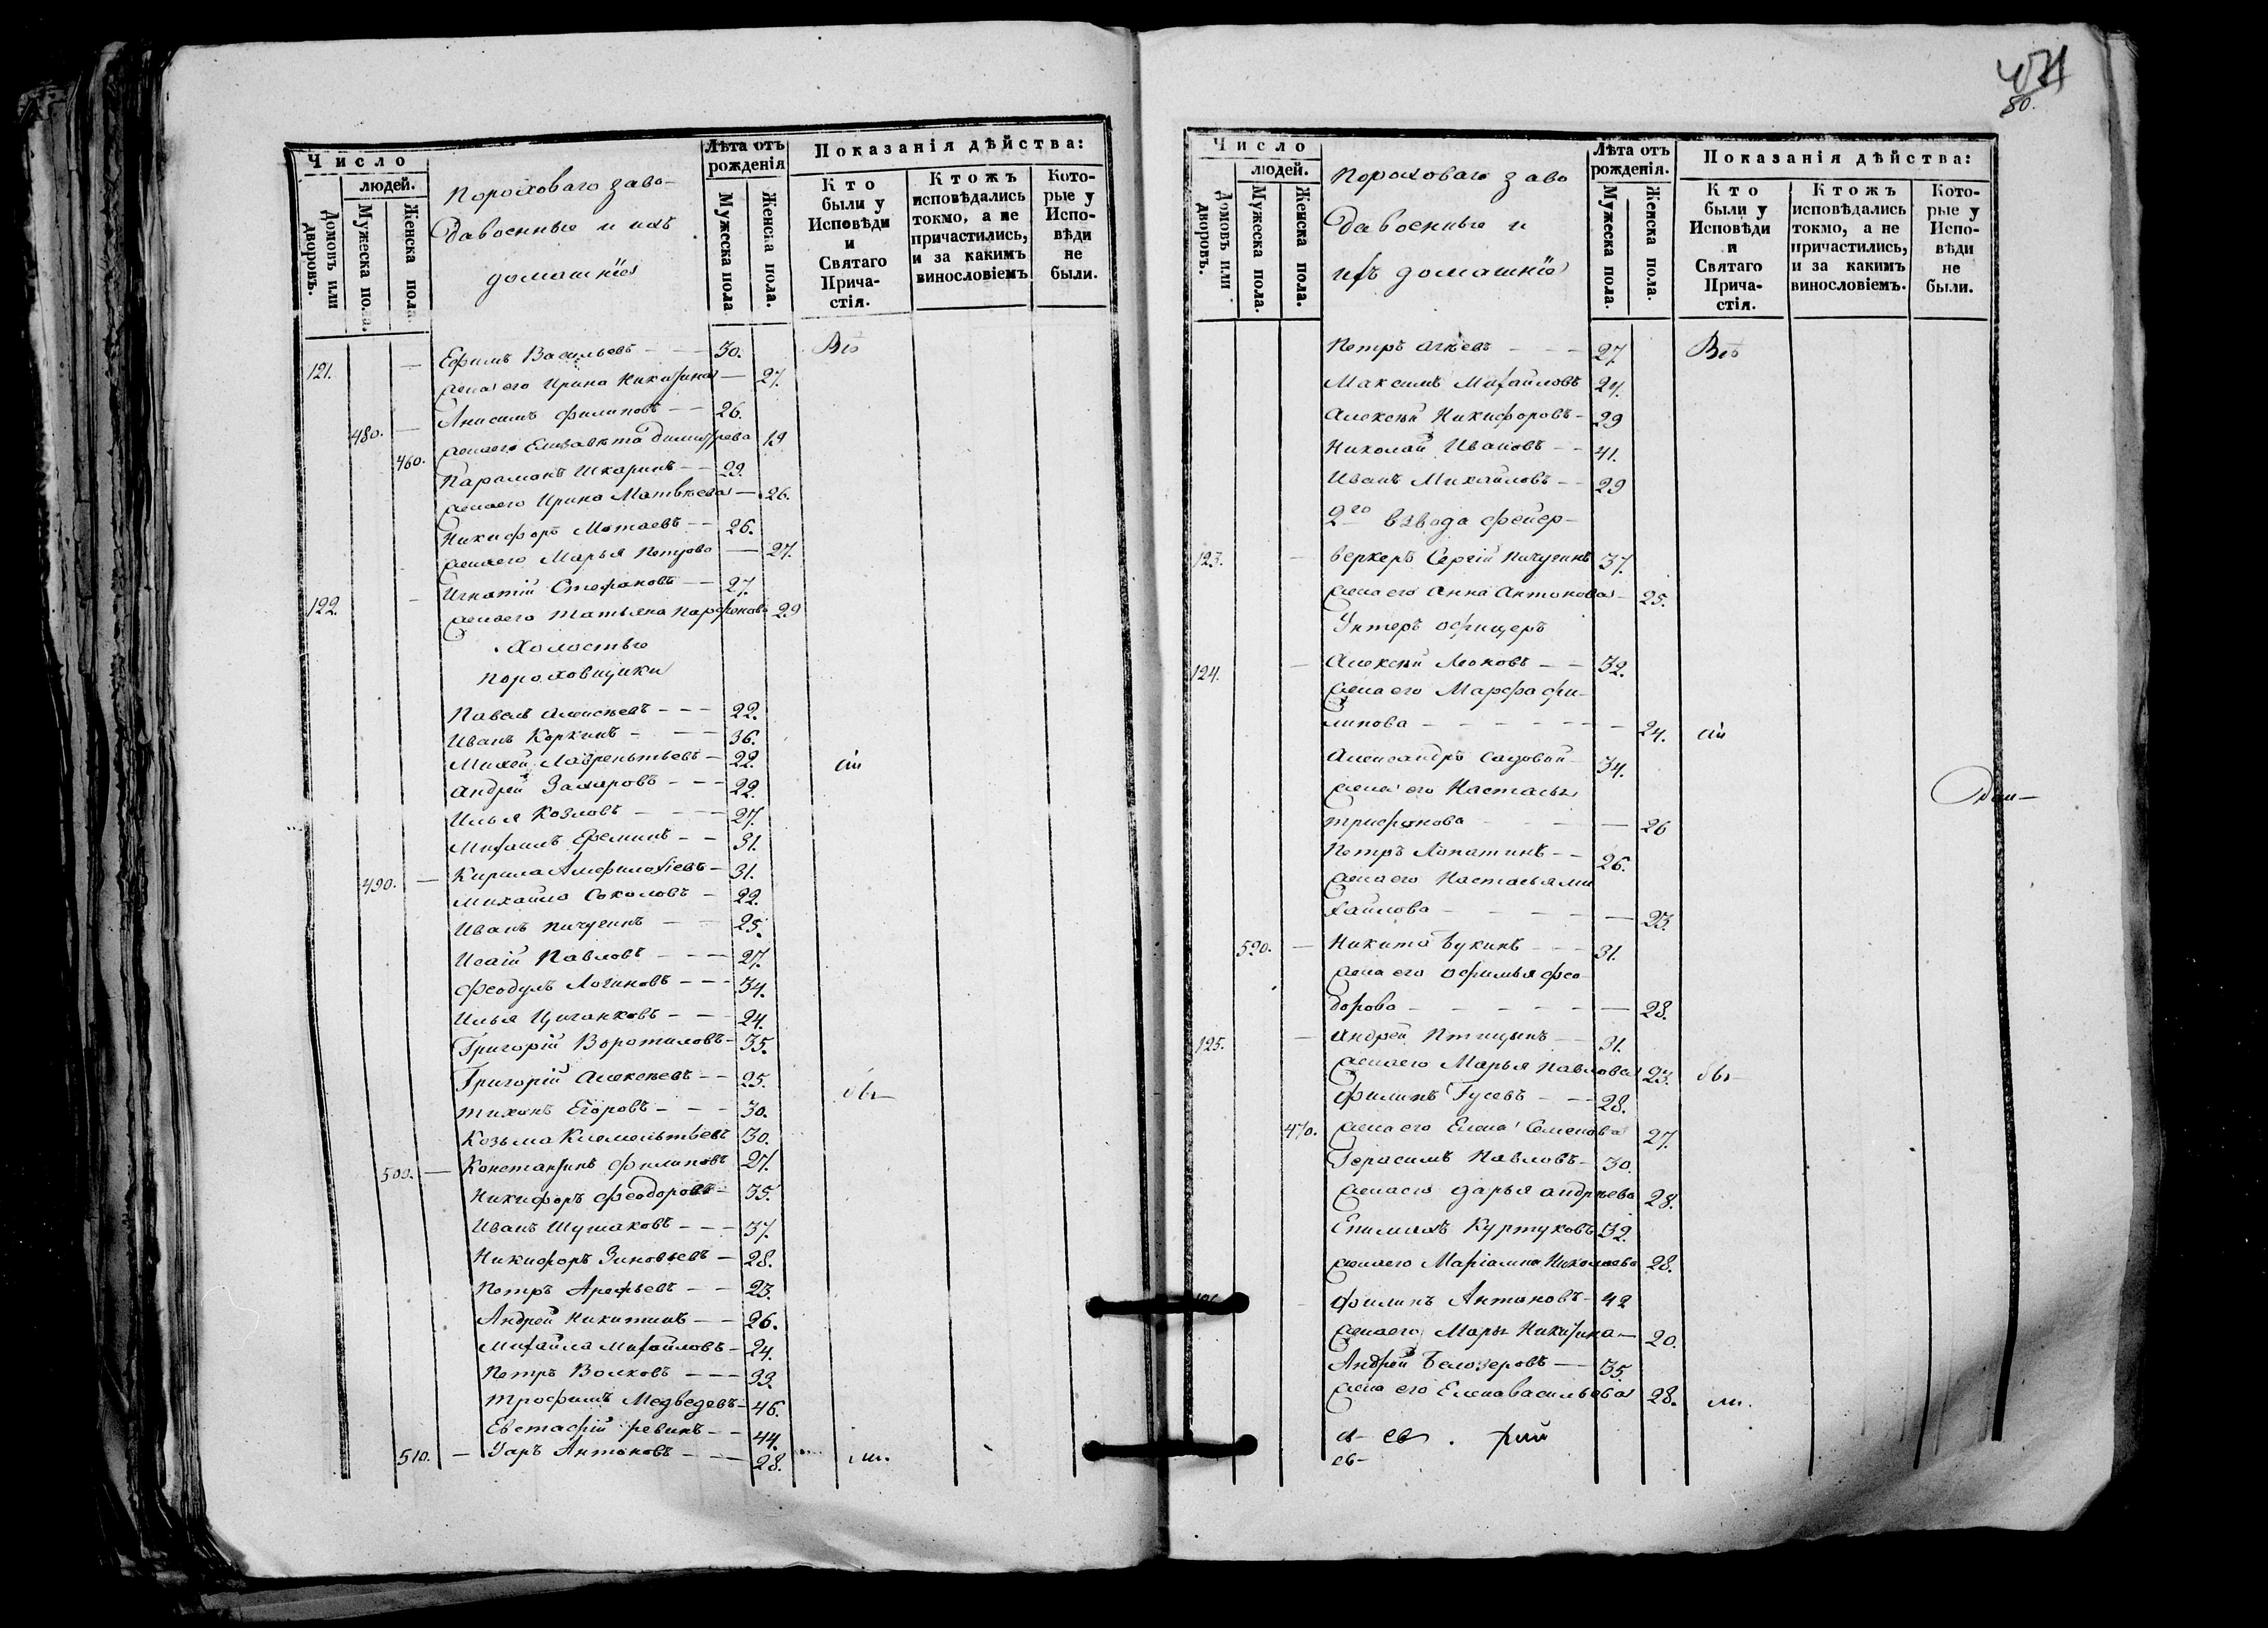 Число
людей.
Домовъ или дворовъ.
Мужеска пола.
Женска пола.
Пороховаго заво-
да военные и ихъ
домашніе
Лѣта отъ рожденія
Мужеска пола
Женска пола.
Показанія дѣйства:
Кто были у Исповѣди и Святаго Прича-стія.
Ктожъ исповѣдались токмо, а не причастились, и за какимъ винословіемъ
Кото-рые у Испо-вѣди не были.
121. — Ефимъ Васильевъ — — 30. Всѣ
жена его Ирина Никитина — 27.
480. — Анисимъ Филиповъ — — 26.
460. жена его Елизавета Димитрева 19
Парамонъ Шкаринъ — — 29.
жена его Ирина Матвѣева — 26.
Никифоръ Мотаевъ — — 26.
жена его Марья Петрова — 27.
122. — Игнатій Стефановъ — — 27.
жена его Татьяна Парфенова 29
Холостые
пороховщики
Павелъ Алексѣевъ — — — 22.
Иванъ Коркинъ — — — 36.
Михей Лаврентьевъ — 22. сіи
Андрей Захаровъ — — — 22.
Илья Козловъ — — — 27.
Михаилъ Ереминъ — — 31.
490. — Кирила Амфилохіевъ — 31.
Михайло Соколовъ — 22.
Иванъ Пичугинъ — 25.
Исаій Павловъ — — — 27.
Феодулъ Логиновъ — — — 34.
Илья Цыганковъ — — — 24.
Григорій Воротиловъ — 35.
Григорій Алексѣевъ — — 25. бы—
Тихонъ Егоровъ — — — 30.
Козьма Клементьевъ 30.
500. — Константинъ Филиповъ 27.
Никифоръ Феодоровъ — 35.
Иванъ Шушаковъ — — — 37.
Никифоръ Зиновьевъ — 28.
Петръ Арефьевъ — — 23.
Андрей Никитинъ — — 26.
Михайла Михайловъ — 24.
Петръ Волковъ — — — 33.
Трофимъ Медведевъ — 46.
Евстафій Ревинъ — — 44.
510. — Уаръ Антоновъ — — — 28. ли.
80.
Число
людей.
Домовъ или дворовъ.
Мужеска пола.
Женска пола.
Пороховаго заво
да военные и
ихъ домашніе
Лѣта отъ рожденія.
Мужеска пола.
Женска пола.
Показанія дѣйства:
Кто были у Исповѣди и Святаго Прича-стія.
Ктожъ исповѣдались токмо, а не причастились, и за какимъ винословіемъ.
Кото-рые у Испо-вѣди не были.
Петръ Агѣевъ — — — 27. Всѣ
Максимъ Михайловъ 24.
Алексѣй Никифоровъ — 29
Николай Ивановъ — — 41.
Иванъ Михайловъ — — 29
2го взвода фейер-
123. — веркеръ Сергій Пичугинъ 37.
жена его Анна Антонова — 25.
Унтеръ офицеръ
124. — Алексѣй Леоновъ — — 32.
жена его Марфа Фи-
липова — — — — — — 24. сіи
Александръ Садовой — 34.
жена его Настасья
Трифонова — — — 26
Петръ Лопатинъ — — 26.
жена его Настасья Ми
хайлова — — — — — 23.
520. — Никита Букинъ — — — 31.
жена его Офимья Фео
дорова — — — — — — 28.
125. — Андрей Птицынъ — — 31.
жена его Марья Павлова 23. бы—
Филипъ Гусевъ — — — 28.
470. жена его Елена Семенова 27.
Герасимъ Павловъ — 30.
жена его Дарья Андреева 28.
Епимахъ Куртуковъ 32.
жена его Маріамна Николаева 28.
Филипъ Антоновъ — 42
жена его Марья Никитина — 20.
Андрей Белозеровъ — — 35.
жена его Елена Васильева 28. ли.